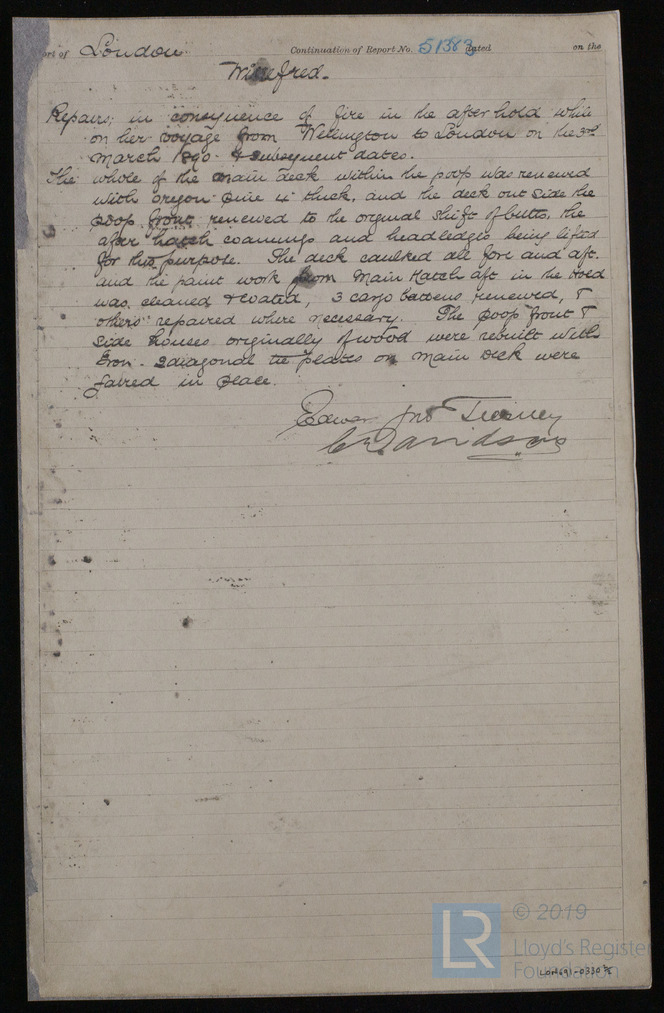 ort of London Continuation of Report No. 51383 dated on the
Winefred.
Repairs, in consequence of fire in the after hold while
on her voyage from Wellington to London on the 3rd
March 1890 & subsequent dates.
The whole of the main deck within the poop was renewed
with oregon pine 4" thick, and the deck out side the
poop front renewed to the original shift of butts, the
after hatch coamings and headledges being lifted
for this purpose. The deck caulked all fore and aft.
and the paint work from Main Hatch aft in the Hold
was cleaned & coated, 3 cargo battens renewed, &
others repaired where necessary. The poop front &
side houses originally of wood were rebuilt with
Iron. 2 diagonal tie plates on main deck were
faired in place.
Jno
Davidson
© 2019
Lloyd's Register
Foundation